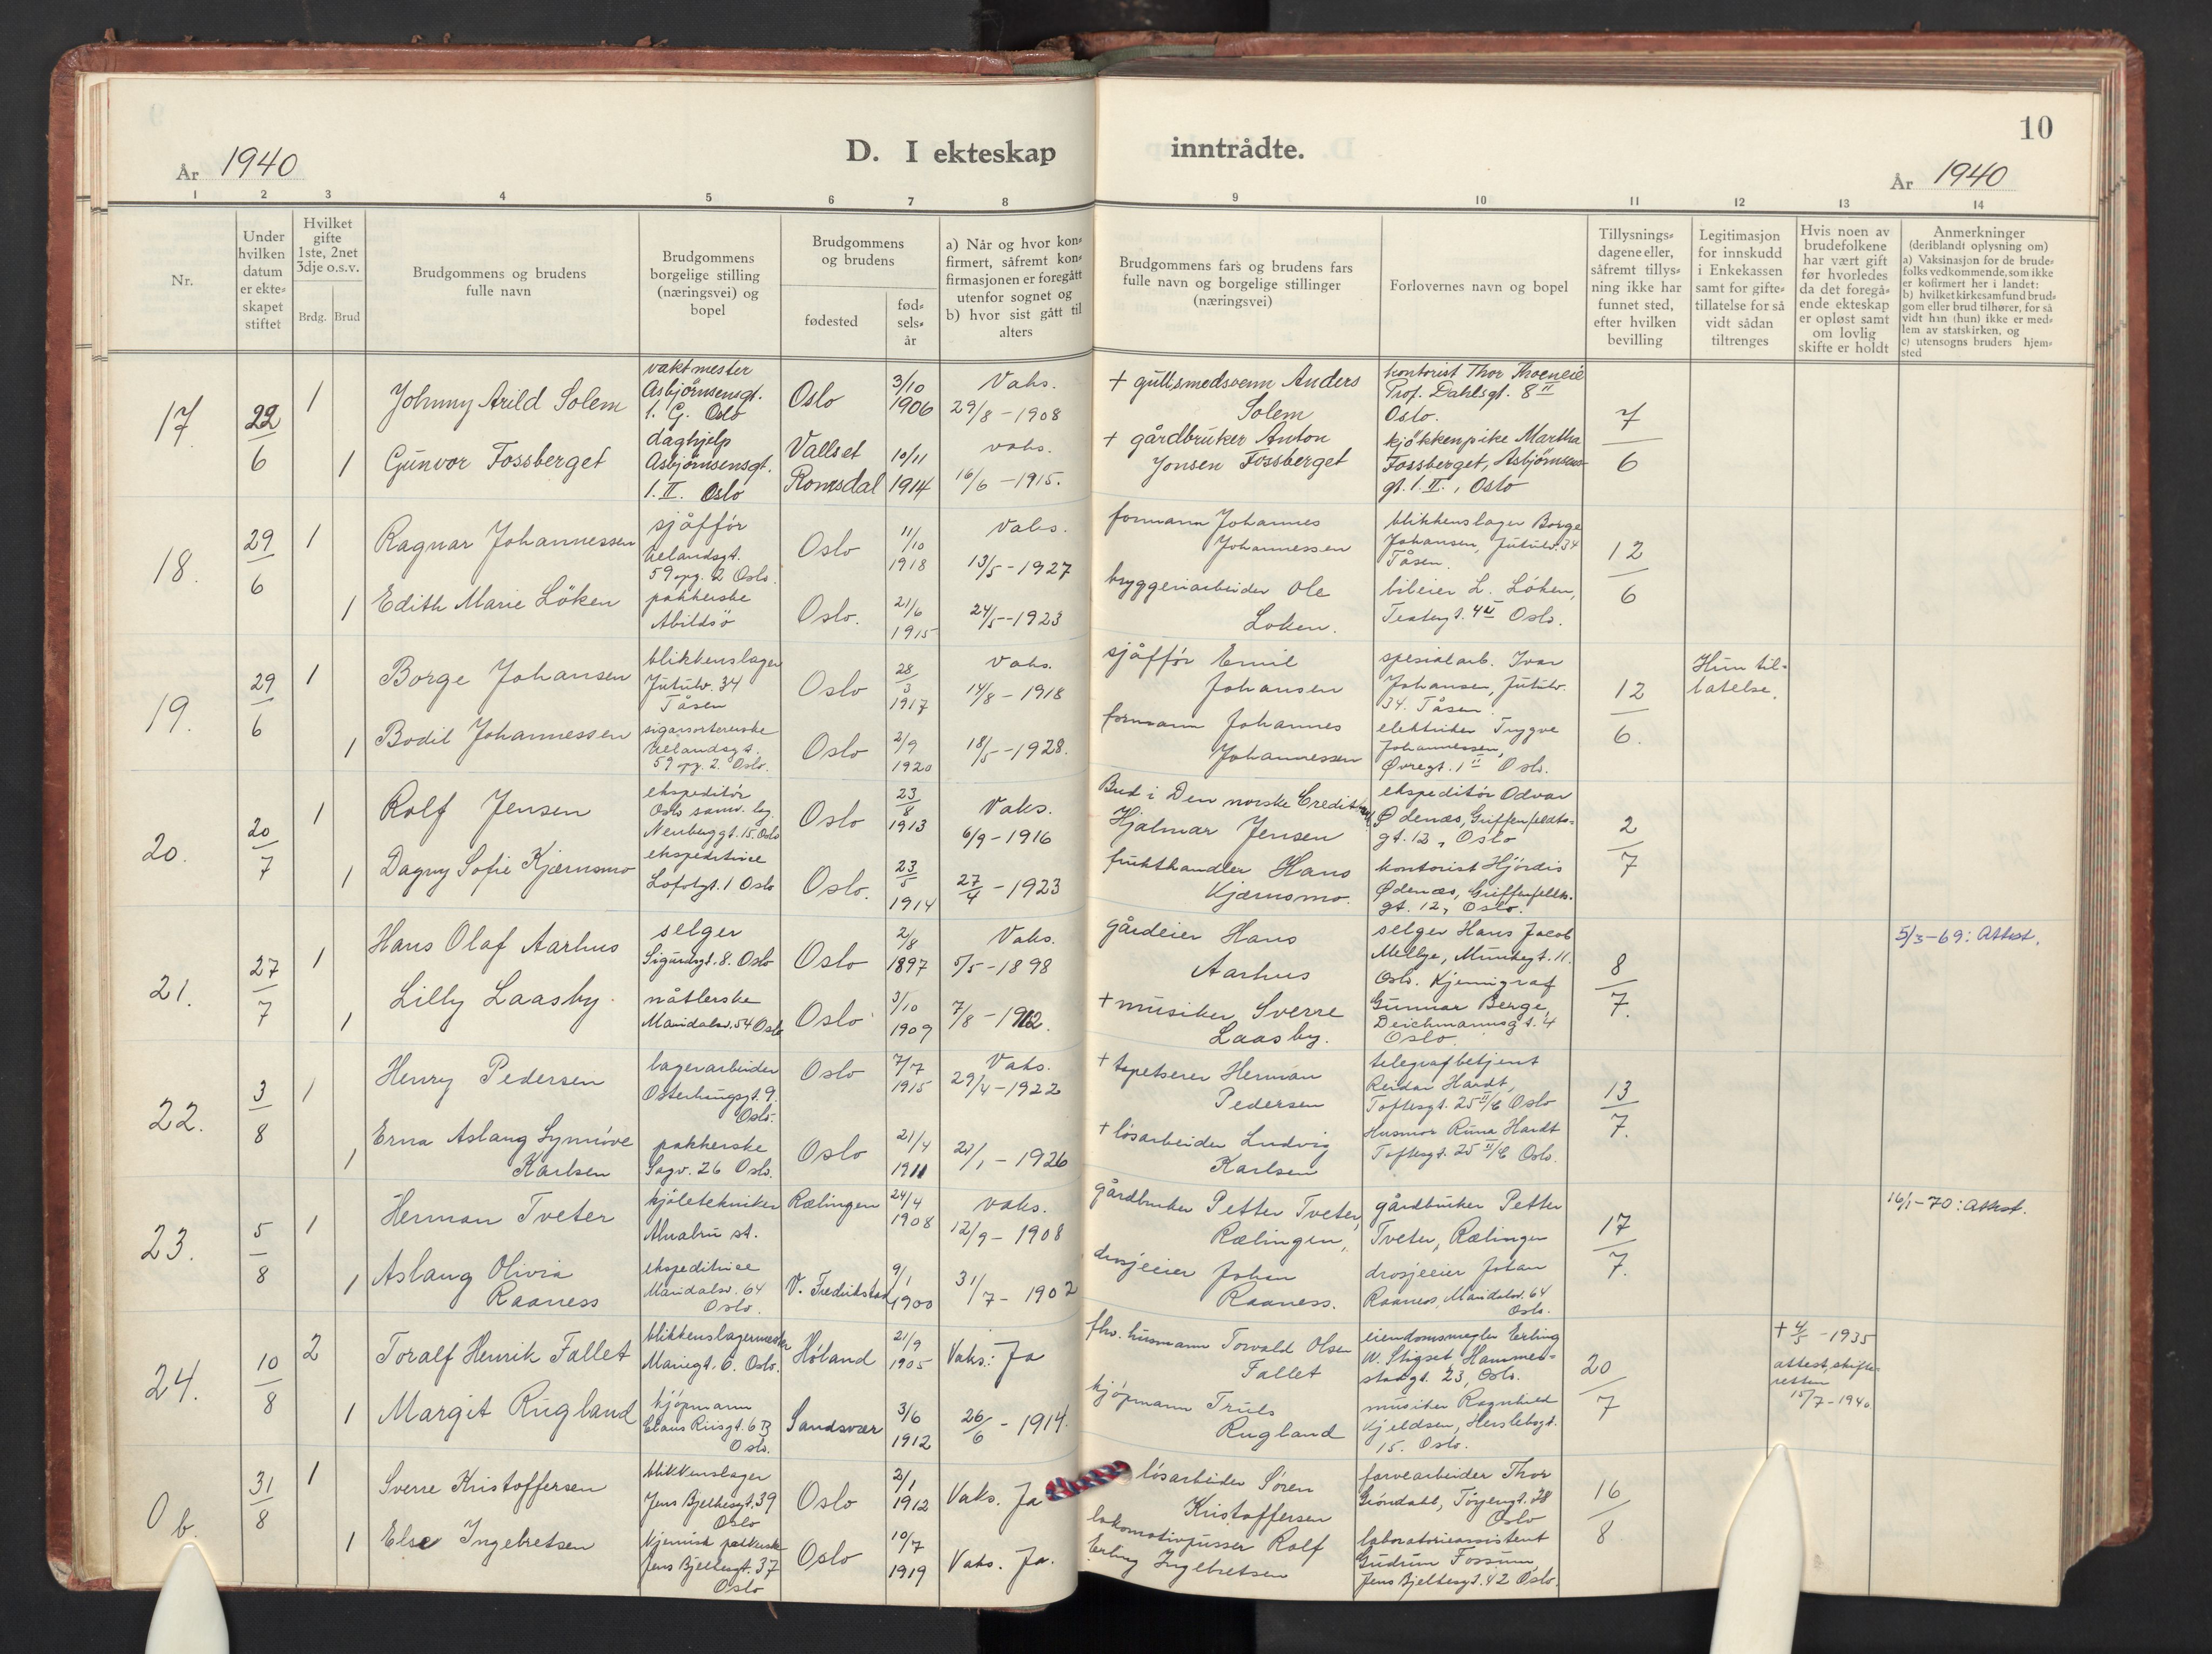 10
År 1940
D. I ekteskap inntrådte.
År 1940
1 2 3 4 5 6 7 8 9 10 11 12 13 14
Nr.
Under
hvilken
datum
er ekte-
skapet
stiftet
Hvilket
gifte
1ste, 2net
3dje o.s.v.
Brdg. Brud
Brudgommens og brudens
fulle navn
Brudgommens
borgelige stilling
(næringsvei) og
bopel
Brudgommens
og brudens
fødested
fød-
sels-
år
a) Når og hvor kon-
firmert, såfremt kon-
firmasjonen er foregått
utenfor sognet og
b) hvor sist gått til
alters
Brudgommens fars og brudens fars
fulle navn og borgelige stillinger
(næringsvei)
Forlovernes navn og bopel
Tillysnings-
dagene eller,
såfremt tillys-
ning ikke har
funnet sted,
efter hvilken
bevilling
Legitimasjon
for innskudd
i Enkekassen
samt for gifte-
tillatelse for så
vidt sådan
tiltrenges
Hvis noen av
brudefolkene
har vært gift
før hvorledes
da det foregå-
ende ekteskap
er opløst samt
om lovlig
skifte er holdt
Anmerkninger
(deriblandt oplysning om)
a) Vaksinasjon for de brude-
folks vedkommende, som ikke
er kofirmert her i landet:
b) hvilket kirkesamfund brud-
gom eller brud tilhører, for så
vidt han (hun) ikke er med-
lem av statskirken, og
c) utensogns bruders hjem-
sted
17.
22/6
1
Johnny Arild Solem
vaktmester
Asbjørnsensgt.
1. G. Oslo
Oslo
3/10
1906
Vaks.
29/8 - 1908
+ gullsmedsvenn Anders
Solem
kontorist Thor
Prof. Dahlsgt. 8 II
Oslo.
7/6
1
Gunvor Fossberget
daghjelp
Asbjørnsensgt.
1. II. Oslo
Vallset
Romsdal
10/11
1914
vaks.
16/6 - 1915.
+ gårdbruker Anton
Jonsen Fossberget
kjøkkenpike Martha
Fossberget, Asbjørnsens-
gt. 1. II., Oslo
18.
29/6
1
Ragnar Johannessen
sjåffør
Uelandsgt.
59 opg. 2 Oslo.
Oslo
11/10
1918
Vaks.
13/5 - 1927
formann Johannes
Johannessen
blikkenslager Borge
Johansen, Jutulv. 34
Tåsen.
12/6
1
Edith Marie Löken
pakkerske
Abildsö
Oslo.
21/6
1915
24/5 - 1923
bryggeriarbeider Ole
Loken.
bileier L. Löken,
Oslo.
19.
29/6
1
Borge Johansen
blikkenslager
Jutulv. 34
Tåsen
Oslo
28/3
1917
Vaks.
14/8 - 1918
sjåffør Emil
Johansen
spesialarb. Ivar
Johansen, Jutulv.
34. Tåsen.
12/6.
Hun til-
latelse.
1
Bodil Johannessen
sigarsortererske
Uelandsgt.
59 opg. 2. Oslo.
Oslo
2/9
1920
18/5 - 1928.
formann Johannes
Johannessen
elektriker Trygve
Johannessen,
Øvregt. 1 II Oslo.
20.
20/7
1
Rolf Jensen
ekspeditør
Oslo samv. lag
Neuberggt. 15. Oslo
Oslo
23/8
1913
Vaks.
6/9 - 1916
Bud i Den norske Creditbank
Hjalmar Jensen
ekspeditør Odvar
Ødenæs, Griffenfeldts-
gt. 12, Oslo
2/7
1
Dagny Sofie Kjærnsmo
ekspeditrice
Lofotgt. 1 Oslo
Oslo.
23/5
1914
27/4 - 1923
frukthandler Hans
Kjærnsmo.
kontorist Hjördis
Ødenæs, Griffenfeldts-
gt. 12, Oslo.
21.
27/7
1
Hans Olaf Aarhus
selger
Sigurdsgt. 8. Oslo
Oslo
2/8
1897
Vaks.
5/5 - 1898
gårdeier Hans
Aarhus
selger Hans Jacob
Mellbye, Munkegt. 11.
Oslo. Kjemigraf
8/7.
5/3-69: Attest.
1
Lilly Laasby.
nåtlerske
Maridalsv. 54 Oslo
Oslo
3/10
1909
7/8 - 1912.
+ musiker Sverre
Laasby.
Gunnar Berge,
Deichmannsgt. 4
Oslo.
22.
3/8
1
Henry Pedersen
lagerarbeider
Österhausgt. 9.
Oslo.
Oslo
7/7
1915
Vaks.
29/4 - 1922
+ tapetserer Herman
Pedersen
telegrafbetjent
Reidar Hardt,
Toftesgt. 25 II/C Oslo
13/7.
1
Erna Aslaug Synnöve
Karlsen
pakkerske
Sagv. 26 Oslo.
Oslo
21/4
1911
21/1 - 1926
+ lösarbeider Ludvig
Karlsen
Husmor Runa Hardt
Toftesgt. 25 II/C Oslo.
23.
5/8
1
Herman Tveter
kjöletekniker
Alnabru st.
Rælingen
24/4
1908
vaks.
12/9 - 1908
gårdbruker Petter Tveter,
Rælingen,
gårdbruker Petter
Tveter, Rælingen
17/7.
16/1-70: Attest.
1
Aslaug Olivia
Raaness
ekspeditrice
Maridalsv. 64
Oslo.
V. Fredrikstad
9/1
1900
31/7 - 1902
drosjeeier Johan
Raaness.
drosjeeier Johan
Raaness, Maridalsv. 64
Oslo.
24.
10/8
2
Toralf Henrik Fallet
blikkenslagermester
Mariegt. 6. Oslo.
Höland
21/9
1905
Vaks.: Ja
fhv. husmann Torvald Olsen
Fallet
eiendomsmegler Erling
W. Stigset, Hammer-
stadgt. 23, Oslo.
20/7
+ 4/5 - 1935
attest, skifte-
retten
15/7 - 1940
1
Margit Rugland
kjöpmann
Claus Riisgt. 6 B
Oslo.
Sandsvær
3/6
1912
26/6 - 1914.
kjöpmann Truls
Rugland
musiker Ragnhild
Kjeldsen, Herslebsgt.
15. Oslo.
0 b.
31/8
1
Sverre Kristoffersen
blikkenslager
Jens Bjelkesgt. 39
Oslo
Oslo
2/1
1912
Vaks. Ja
lösarbeider Sören
Kristoffersen
farvearbeider Thor
Gröndahl, Töyengt. 28
Oslo
16/8
1
Else Ingebretsen
kjemisk pakkerske
Jens Bjelkesgt. 37
Oslo
Oslo
10/7
1919
Vaks. Ja.
lokomotivpusser Rolf
Erling Ingebretsen
laboratorieassistent
Gudrun Fossum,
Jens Bjelkesgt. 42 Oslo.